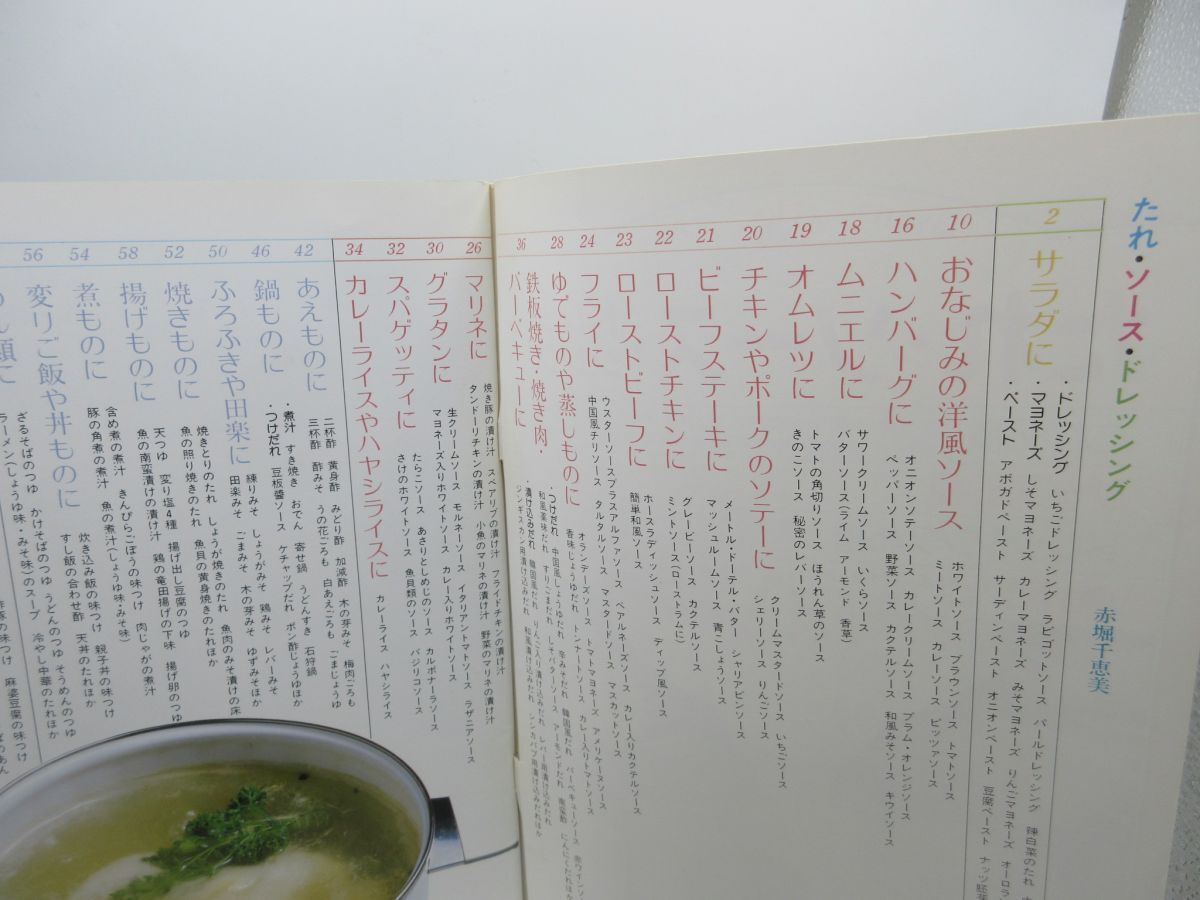 たれ・ソース・ドレッシング
赤堀千恵美
2
サラダに
・ドレッシング いちごドレッシング ラビゴットソース パールドレッシング 辣白菜のたれ
・マヨネーズ しそマヨネーズ カレーマヨネーズ みそマヨネーズ りんごマヨネーズ オーロラ
・ペースト アボガドペースト サーディンペースト オニオンペースト 豆腐ペースト ナッツ胚芽
10
おなじみの洋風ソース
ホワイトソース ブラウンソース トマトソース
ミートソース カレーソース ピッツァソース
16
ハンバーグに
オニオンソテーソース カレークリームソース プラム・オレンジソース
ペッパーソース 野菜ソース カクテルソース 和風みそソース キウイソース
18
ムニエルに
サワークリームソース いくらソース
バターソース(ライム アーモンド 香草)
19
オムレツに
トマトの角切りソース ほうれん草のソース
きのこソース 秘密のレバーソース
20
チキンやポークのソテーに
クリームマスタードソース いちごソース
シェリーソース りんごソース
21
ビーフステーキに
メートル・ドーテル・バター シャリアピンソース
マッシュルームソース 青こしょうソース
22
ローストチキンに
グレービーソース カクテルソース
ミントソース(ローストラムに)
23
ローストビーフに
ホースラディッシュソース ディップ風ソース
簡単和風ソース
24
フライに
ウスターソースプラスアルファソース ベアルネーズソース カレー入りカクテルソース
中国風チリソース タルタルソース マスタードソース マスカットソース
28
ゆでものや蒸しものに
オランデーズソース トマトマヨネーズ アメリケーヌソース
香味じょうゆだれ トンナートソース カレー入りトマトソース
・つけだれ 中国風しょうゆだれ 辛みそだれ 韓国風だれ バーベキューソース 赤ワインソース
和風薬味だれ すりごまだれ しそバターソース アーモンドだれ 南蛮酢 にんにくだれほか
36
鉄板焼き・焼き肉・
バーベキューに
・漬け込みだれ 韓国風だれ りんご入り漬け込みだれ レバー用漬け込みだれ
ジンギスカン用漬け込みだれ 和風漬け込みだれ シシカバブ用漬け込みだれほか
26
マリネに
焼き豚の漬け汁 スペアリブの漬け汁 フライドチキンの漬け汁
タンドーリチキンの漬け汁 小魚のマリネの漬け汁 野菜のマリネの漬け汁
30
グラタンに
生クリームソース モルネーソース イタリアントマトソース ラザニアソース
マヨネーズ入りホワイトソース カレー入りホワイトソース
32
スパゲッティに
たらこソース あさりとしめじのソース カルボナーラソース
さけのホワイトソース 魚貝類のソース バジリコソース
34
カレーライスやハヤシライスに
カレーライス ハヤシライス
42
あえものに
二杯酢 黄身酢 みどり酢 加減酢 木の芽みそ 梅肉ごろも
三杯酢 酢みそ うの花ごろも 白あえごろも ごまじょうゆ
46
鍋ものに
・煮汁 すき焼き おでん 寄せ鍋 うどんすき 石狩鍋
・つけだれ 豆板醤ソース ケチャップだれ ポン酢じょうゆほか
50
ふろふきや田楽に
練りみそ しょうがみそ 鶏みそ レバーみそ
田楽みそ ごまみそ 木の芽みそ ゆずみそほか
52
焼きものに
焼きとりのたれ しょうが焼きのたれ 魚肉のみそ漬けの床
魚の照り焼きのたれ 魚貝の黄身焼きのたれほか
58
揚げものに
天つゆ 変り塩4種 揚げ出し豆腐のつゆ
魚の南蛮漬けの漬け汁 鶏の竜田揚げの下味 揚げ卵のつゆ
54
煮ものに
含め煮の煮汁 きんぴらごぼうの味つけ 肉じゃがの煮汁
豚の角煮の煮汁 魚の煮汁(しょうゆ味・みそ味)
56
変りご飯や丼ものに
炊き込み飯の味つけ 親子丼の味つけ
すし飯の合わせ酢 天丼のたれほか
めん類に
ざるそばのつゆ かけそばのつゆ うどんのつゆ そうめんのつゆ
ラーメン(しょうゆ味・みそ味)のスープ 冷やし中華のたれほか
酢豚の味つけ 麻婆豆腐の味つけ